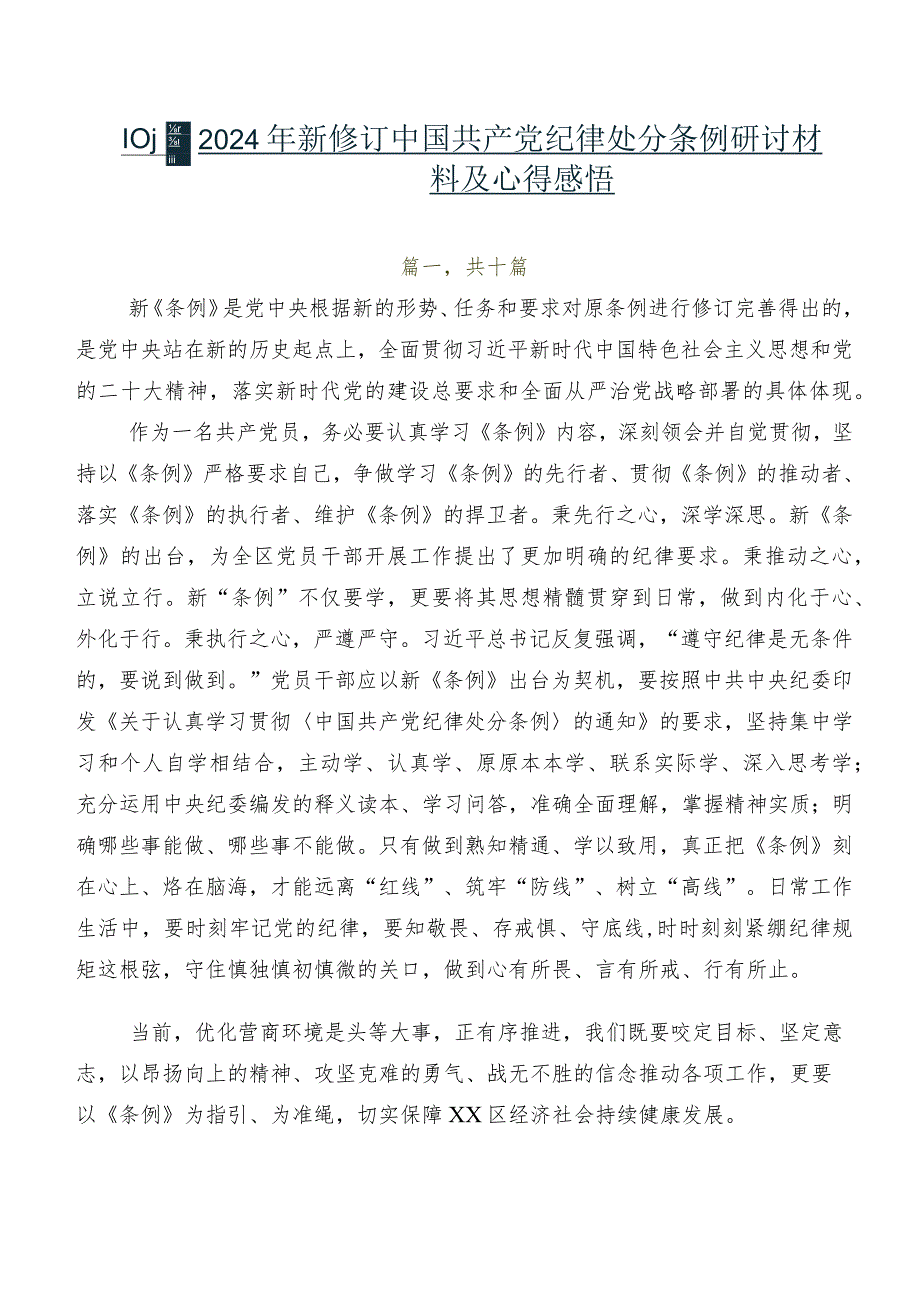 IOj ⅟ar ¾st iii 2024 年新修订中国共产党纪律处分条例研讨材
料及心得感悟
篇一，共十篇
新《条例》是党中央根据新的形势、任务和要求对原条例进行修订完善得出的，
是党中央站在新的历史起点上，全面贯彻习近平新时代中国特色社会主义思想和党
的二十大精神，落实新时代党的建设总要求和全面从严治党战略部署的具体体现。
作为一名共产党员，务必要认真学习《条例》内容，深刻领会并自觉贯彻，坚
持以《条例》严格要求自己，争做学习《条例》的先行者、贯彻《条例》的推动者、
落实《条例》的执行者、维护《条例》的捍卫者。秉先行之心，深学深思。新《条
例》的出台，为全区党员干部开展工作提出了更加明确的纪律要求。秉推动之心，
立说立行。新“条例”不仅要学，更要将其思想精髓贯穿到日常，做到内化于心、
外化于行。秉执行之心，严遵严守。习近平总书记反复强调，“遵守纪律是无条件
的，要说到做到。”党员干部应以新《条例》出台为契机，要按照中共中央纪委印
发《关于认真学习贯彻〈中国共产党纪律处分条例〉的通知》的要求，坚持集中学
习和个人自学相结合，主动学、认真学、原原本本学、联系实际学、深入思考学；
充分运用中央纪委编发的释义读本、学习问答，准确全面理解，掌握精神实质；明
确哪些事能做、哪些事不能做。只有做到熟知精通、学以致用，真正把《条例》刻
在心上、烙在脑海，才能远离“红线”、筑牢“防线”、树立“高线”。日常工作
生活中，要时刻牢记党的纪律，要知敬畏、存戒惧、守底线,时时刻刻紧绷纪律规
矩这根弦，守住慎独慎初慎微的关口，做到心有所畏、言有所戒、行有所止。
当前，优化营商环境是头等大事，正有序推进，我们既要咬定目标、坚定意
志，以昂扬向上的精神、攻坚克难的勇气、战无不胜的信念推动各项工作，更要
以《条例》为指引、为准绳，切实保障 XX 区经济社会持续健康发展。